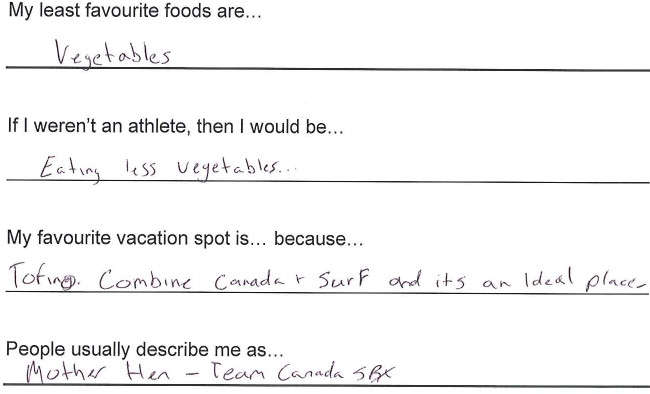 My least favourite foods are...
Vegetables
If I weren't an athlete, then I would be...
Eating less vegetables...
My favourite vacation spot is... because...
Tofino. Combine Canada + Surf and its an Ideal place
People usually describe me as...
Mother Hen - Team Canada SBX